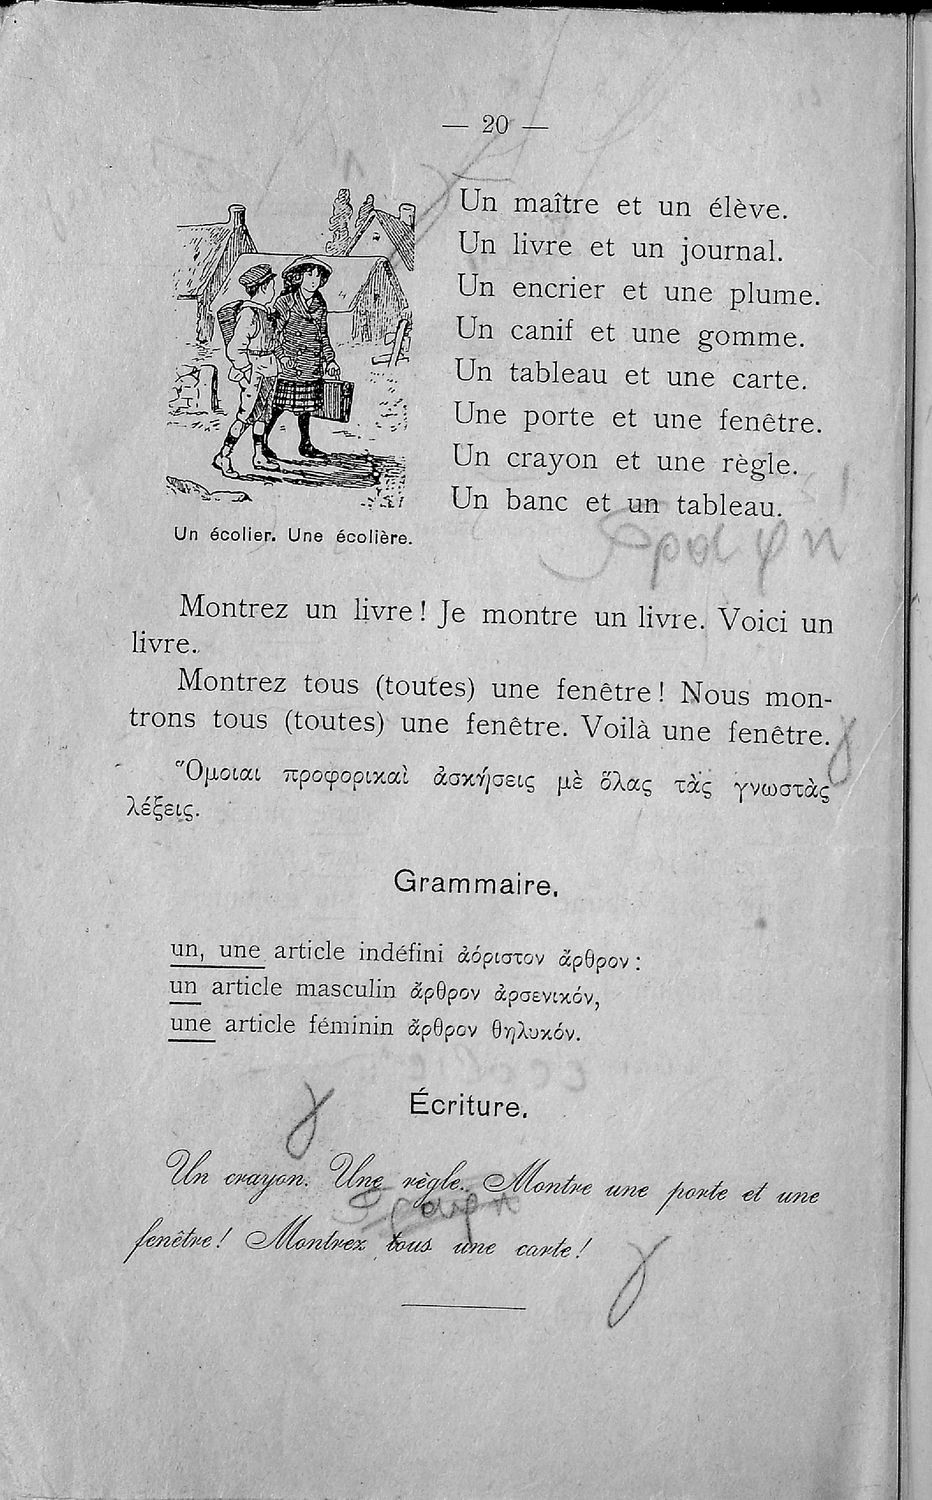 — 20 —
Un maître et un élève.
Un livre et un journal.
Un encrier et une plume.
Un canif et une gomme.
Un tableau et une carte.
Une porte et une fenêtre.
Un crayon et une règle.
Un banc et un tableau.
Un écolier. Une écolière.
Montrez un livre! Je montre un livre. Voici un
livre.
Montrez tous (toutes) une fenêtre! Nous mon-
trons tous (toutes) une fenêtre. Voilà une fenêtre.
Ὅμοιαι προφορικαὶ ἀσκήσεις μὲ ὅλας τὰς γνωστὰς
λέξεις.
Grammaire.
un, une article indéfini ἀόριστον ἄρθρον:
un article masculin ἄρθρον ἀρσενικόν,
une article féminin ἄρθρον θηλυκόν.
Écriture.
Un crayon. Une règle. Montre une porte et une
fenêtre! Montrez tous une carte!